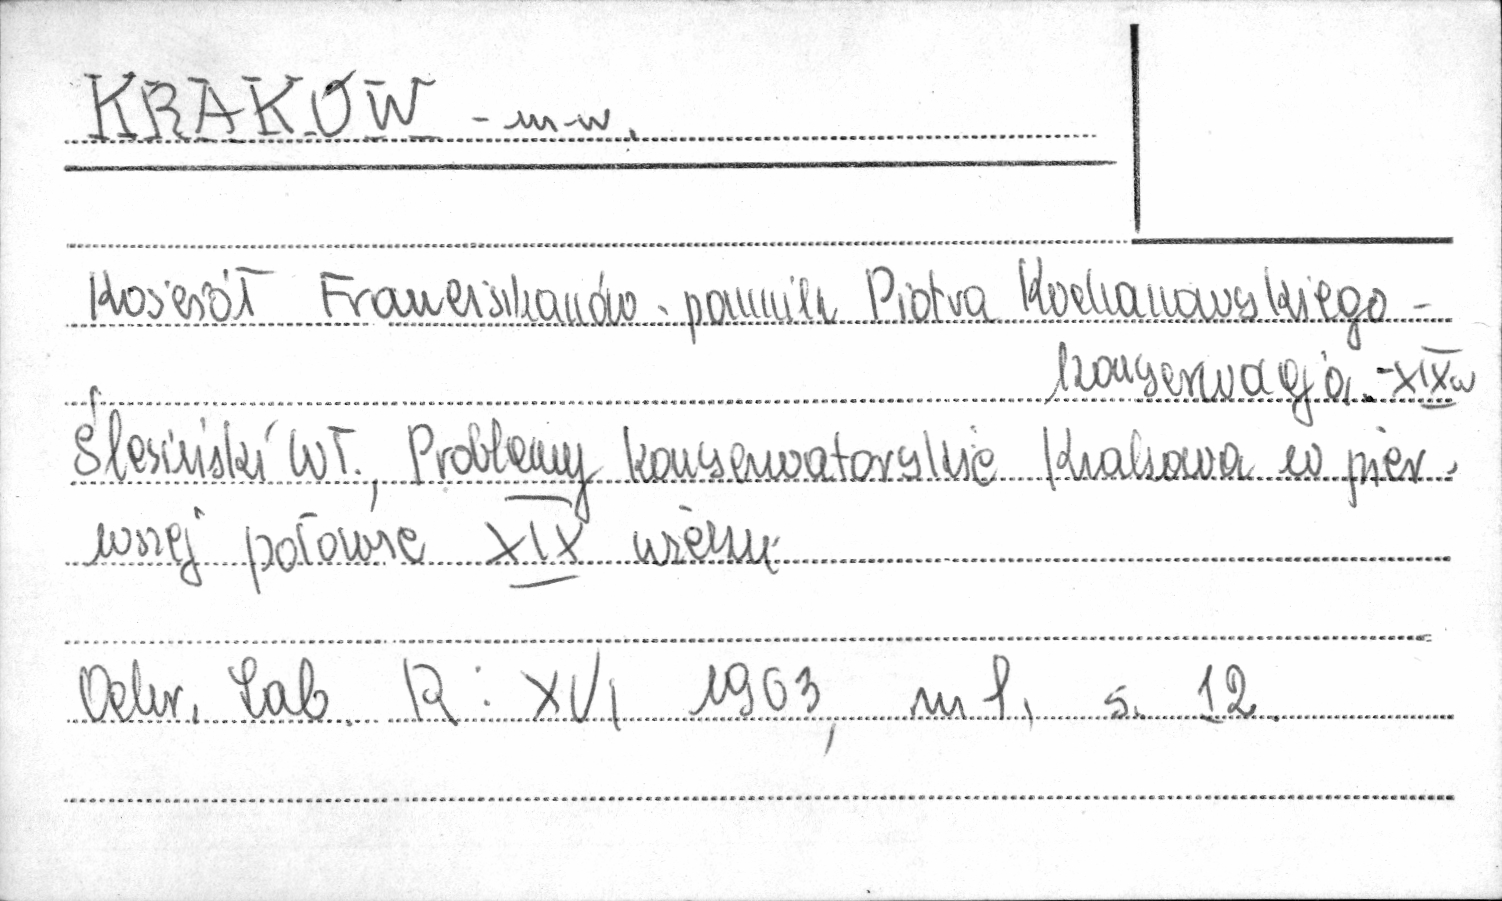 KRAKÓW - m-w.
Kościół Franciszkanów - pomnik Piotra Kochanowskiego -
konserwacja. - XIX w
Ślesiński Wł., Problemy konserwatorskie Krakowa w pier-
wszej połowie XIX wieku
Ochr. Zab. R: XVI 1963, nr 1, s. 12.